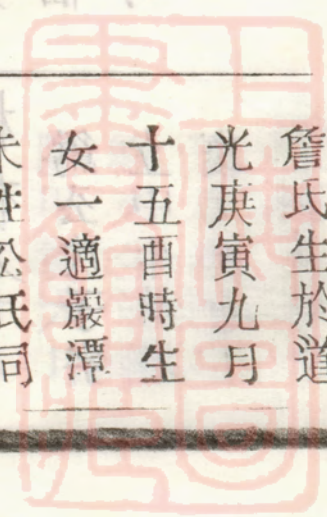 詹氏生於道
光庚寅九月
十五酉時生
女一適嚴潭
朱姓公氏同